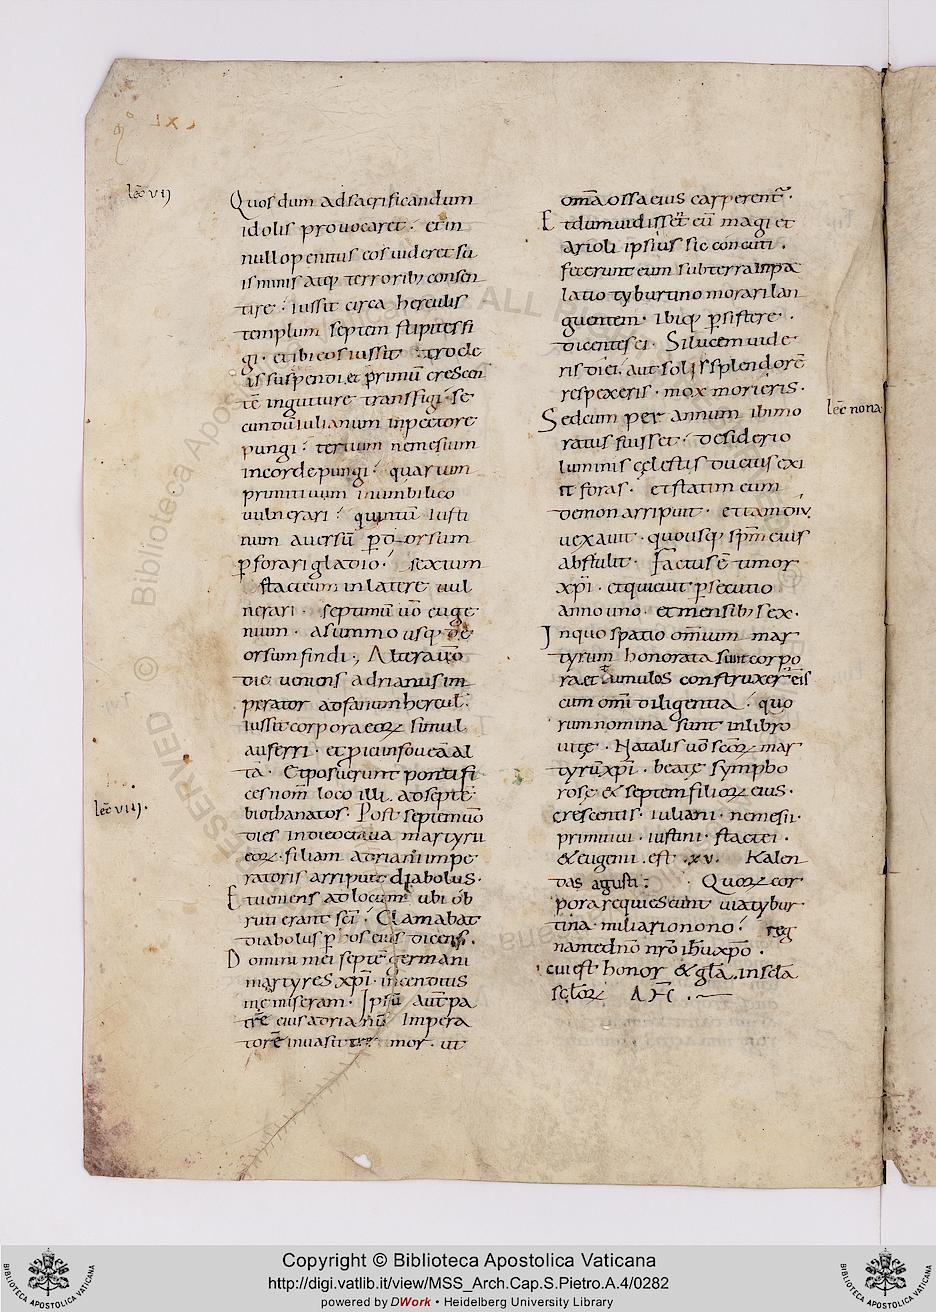 lec̄ vij
Quos dum ad sacrificandum
idolis provocaret · et in
nullo penitus eos videret su
is minis atq; terrorib; consen
tire · iussit circa herculis
templum septem stipites fi
gi · et ibi eos iussit trocle
is suspendi, et primū crescen
tē in gutture transfigi · se
cundū iulianum in pectore
pungi · tertium nemesium
in corde pungi · quartum
primitivum in umbilico
vulnerari · quintū iusti
num aversū p̄ dorsum
p̄forari gladio · sextum
stacteum in latere vul
nerari · septimū uō euge
nium · a summo usq; de
orsum findi ·, Altera uō
die veniens adrianus im
perator ad fanum hercul̄
iussit corpora eoꝝ simul
auferri · et proici in foveā al
tā · Et posuerunt pontifi
ces nom̄ loco illi · ad septē
lec̄ viij ·
biothanatos · Post septem uō
dies in die octava martyrū
eoꝝ · filiam adriani impe
ratoris arripuit diabolus ·
Et veniens ad locum ubi ob
ruti erant sc̄i · Clamabat
diabolus p̄ os eius dicens ·
Domini mei septē germani
martyres xp̄i · incenditis
me miseram · Ipsū aut̄ pa
trē eius adrianū Impera
torē invasit tremor · ut
om̄a ossa eius carperent̄ ·
Et dum vidisset eū magi et
arioli ipsius sic concuti ·
fecerunt eum subterra in pa
latio tyburtino morari lan
guentem · ibiq; p̄sistere ·
dicentes ei · Si lucem vide
ris diei, aut solis splendorē
respexeris · mox morieris ·
lec̄ nona
Sed cum per annum ibi mo
ratus fuisset · desiderio
luminis cęlestis ductus exi
it foras · et statim eum
demon arripuit · et tam diu
vexavit · quousq; sp̄m eius
abstulit · Factus ē timor
xp̄i · et quievit p̄secutio
anno uno · et mensib; sex ·
In quo spatio om̄ium mar
tyrum honorata sunt corpo
ra et tumulos construxer̄ eis
cum omi diligentia · quo
rum nomina sunt in libro
vitę · Natalis uō sc̄oꝝ mar
tyrū xp̄i · beatę sympho
rosę & septem filioꝝ eius ·
crescentis · iuliani · nemesii ·
primitivi · iustini · stactei ·
& eugenii · est · xv · Kalen
das agusti : Quoꝝ cor
pora requiescunt via tybur
tina · miliario nono · reg
nante dn̄o nr̄o ih̄u xp̄o ·
cui est honor & gl̄a · in sc̄la
sc̄loꝝ AHC · —
Copyright © Biblioteca Apostolica Vaticana
http://digi.vatlib.it/view/MSS_Arch.Cap.S.Pietro.A.4/0282
powered by DWork • Heidelberg University Library